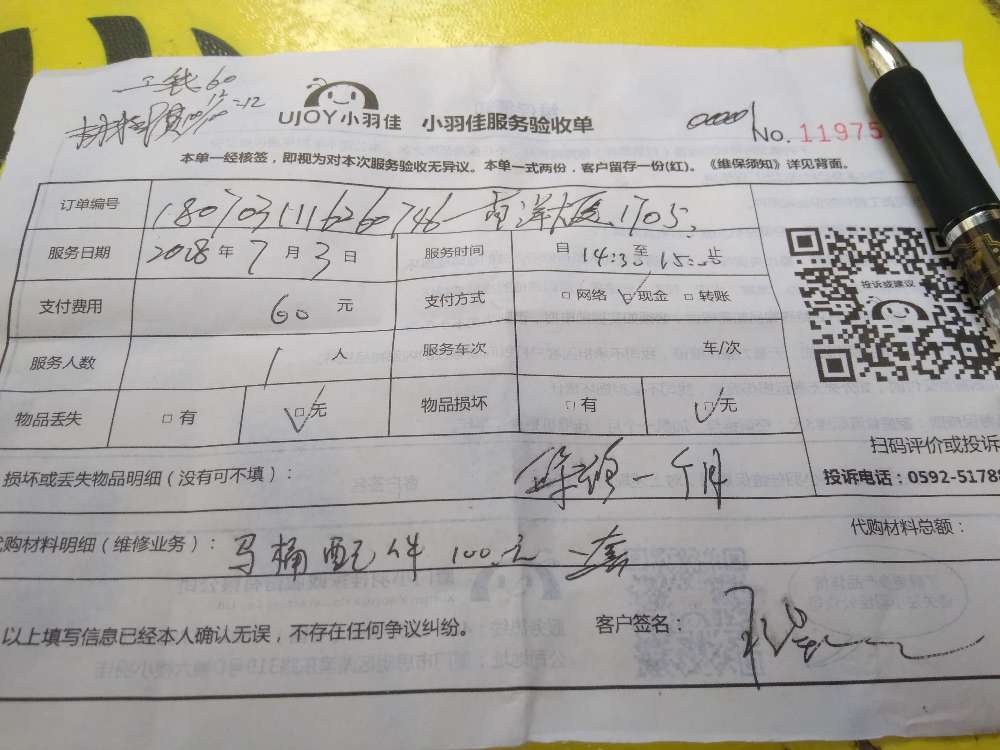 工钱60
UJOY小羽佳 小羽佳服务验收单
No. 11975
本单一经核签，即视为对本次服务验收无异议。本单一式两份，客户留存一份(红)。《维保须知》详见背面。
订单编号 1807031116260746 南洋大厦1705
服务日期 2018年7月3日 服务时间 自14:30至15:00止
支付费用 60元 支付方式 □网络 □现金 □转账
服务人数 1人 服务车次 车/次
物品丢失 □有 □无 物品损坏 □有 □无
投诉或建议
扫码评价或投诉
投诉电话：0592-51788
损坏或丢失物品明细（没有可不填）： 保 一个月
购材料明细（维修业务）： 马桶配件100元一套
代购材料总额：
以上填写信息已经本人确认无误，不存在任何争议纠纷。
客户签名：